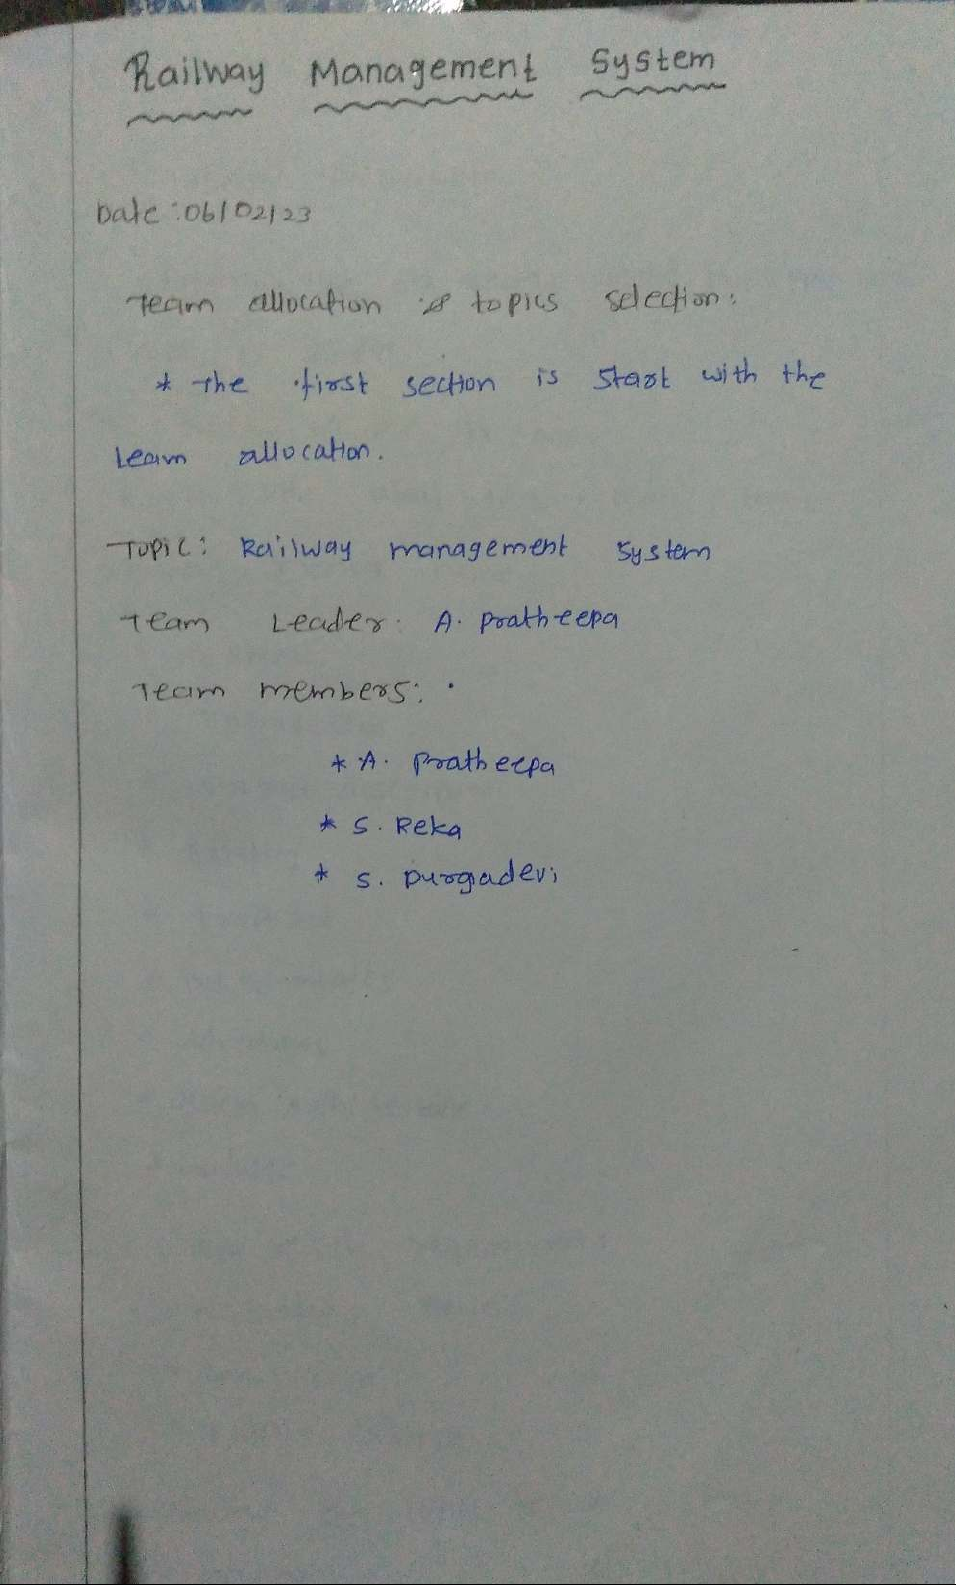 Railway Management System
Date : 06/02/23
Team allocation & topics selection:
* The first section is start with the
team allocation.
Topic: Railway management system
Team Leader: A. Pratheepa
Team members:
* A. Pratheepa
* S. Reka
* S. Durgadevi